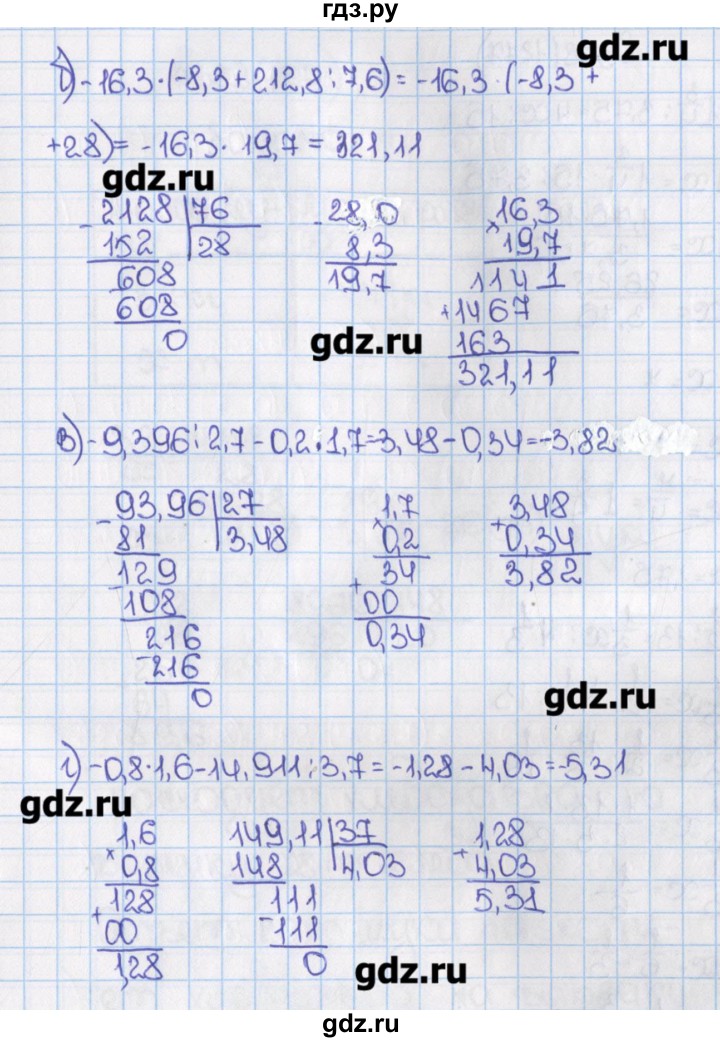 гдз.ру
gdz.ru
б) -16,3·(-8,3+212,8:7,6)= -16,3·(-8,3+
+28)= -16,3·19,7 = 321,11
gdz.ru
- 2128 | 76
152 | 28
608
608
0
- 28,0
8,3
19,7
× 16,3
19,7
1141
+1467
163
321,11
gdz.ru
в) -9,396:2,7-0,2·1,7=-3,48-0,34=-3,82
- 93,96 | 27
81 | 3,48
- 129
108
- 216
216
0
× 1,7
0,2
34
+ 00
0,34
+ 3,48
0,34
3,82
gdz.ru
г) -0,8·1,6-14,911:3,7=-1,28-4,03=-5,31
gdz.ru
× 1,6
0,8
128
+ 00
1,28
149,11 | 37
148 | 4,03
111
- 111
0
+ 1,28
4,03
5,31
gdz.ru
gdz.ru